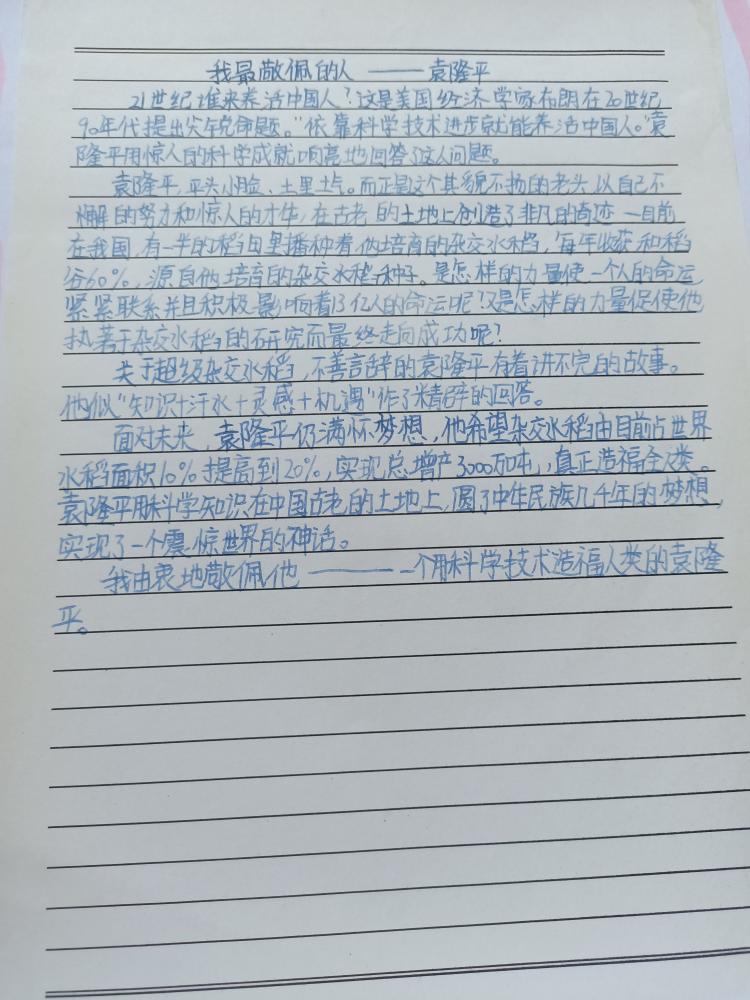 我最敬佩的人——袁隆平
21世纪谁来养活中国人?这是美国经济学家布朗在20世纪
90年代提出尖锐命题。"依靠科学技术进步就能养活中国人。"袁
隆平用惊人的科学成就响亮地回答了这人问题。
袁隆平,平头小脸、土里土气。而正是这个其貌不扬的老头,以自己不
懈的努力和惊人的才华,在古老的土地上创造了非凡的奇迹—目前
在我国,有一半的稻田里播种着他培育的杂交水稻,每年收获和稻
谷60%,源自他培育的杂交水稻种子。是怎样的力量使一个人的命运
紧紧联系并且积极影响着13亿人的命运呢?又是怎样的力量促使他
执著于杂交水稻的研究而最终走向成功呢?
关于超级杂交水稻,不善言辞的袁隆平有着讲不完的故事。
他似"知识+汗水+灵感+机遇"作了精辟的回答。
面对未来,袁隆平仍满怀梦想,他希望杂交水稻由目前占世界
水稻面积10%提高到20%,实现总增产3000万吨,真正造福全人类。
袁隆平用科学知识在中国古老的土地上,圆了中华民族几千年的梦想,
实现了一个震惊世界的神话。
我由衷地敬佩他———一个用科学技术造福人类的袁隆
平。